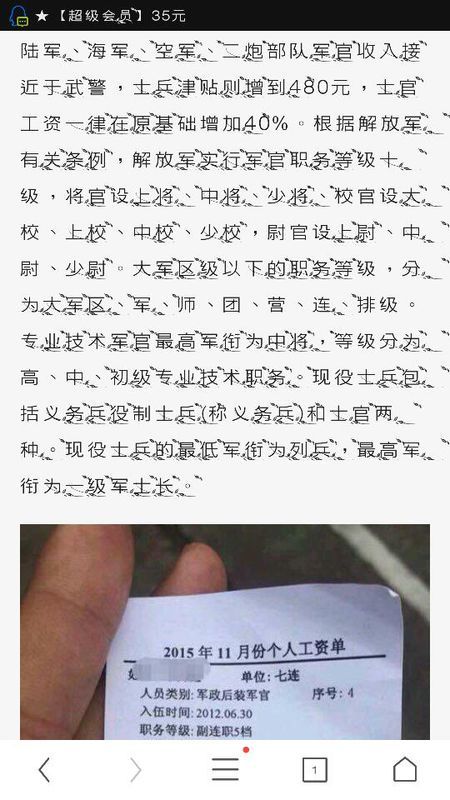 ★【超级会员】35元
陆军、海军、空军、二炮部队军官收入接
近于武警，士兵津贴则增到480元，士官
工资一律在原基础增加40%。根据解放军
有关条例，解放军实行军官职务等级十
级，将官设上将、中将、少将、校官设大
校、上校、中校、少校，尉官设上尉、中
尉、少尉。大军区级以下的职务等级，分
为大军区、军、师、团、营、连、排级。
专业技术军官最高军衔为中将，等级分为
高、中、初级专业技术职务。现役士兵包
括义务兵役制士兵(称义务兵)和士官两
种。现役士兵的最低军衔为列兵，最高军
衔为一级军士长。
2015年11月份个人工资单
单位:七连
人员类别:军政后装军官 序号:4
入伍时间:2012.06.30
职务等级:副连职5档
1